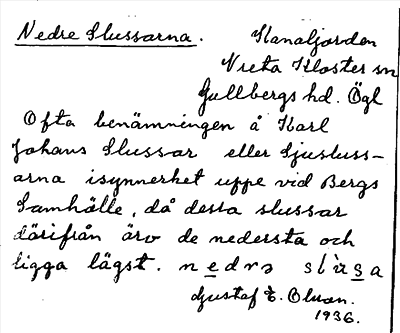 Nedre Slussarna. Kanaljorden
Vreta Kloster sn
Gullbergs hd. Ögl
Ofta benämningen å Karl
Johans Slussar eller Sjusluss-
arna isynnerhet uppe vid Bergs
Samhälle, då dessa slussar
därifrån äro de nedersta och
ligga lägst. nedrə slùsa
Gustaf E. Olsson.
1936.